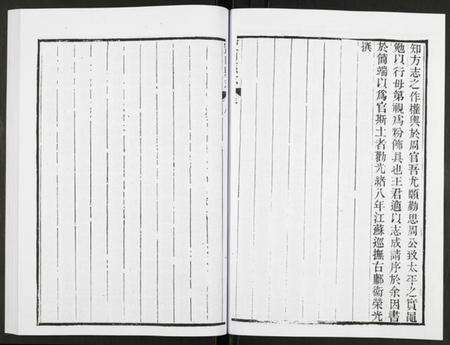 知方志之作權輿於周官吾尤願勤思周公致太平之實黽
勉以行毋第視為粉飾具也王君適以志成請序於余因書
於簡端以為官斯土者勸光緒八年江蘇巡撫右衛榮光
撰